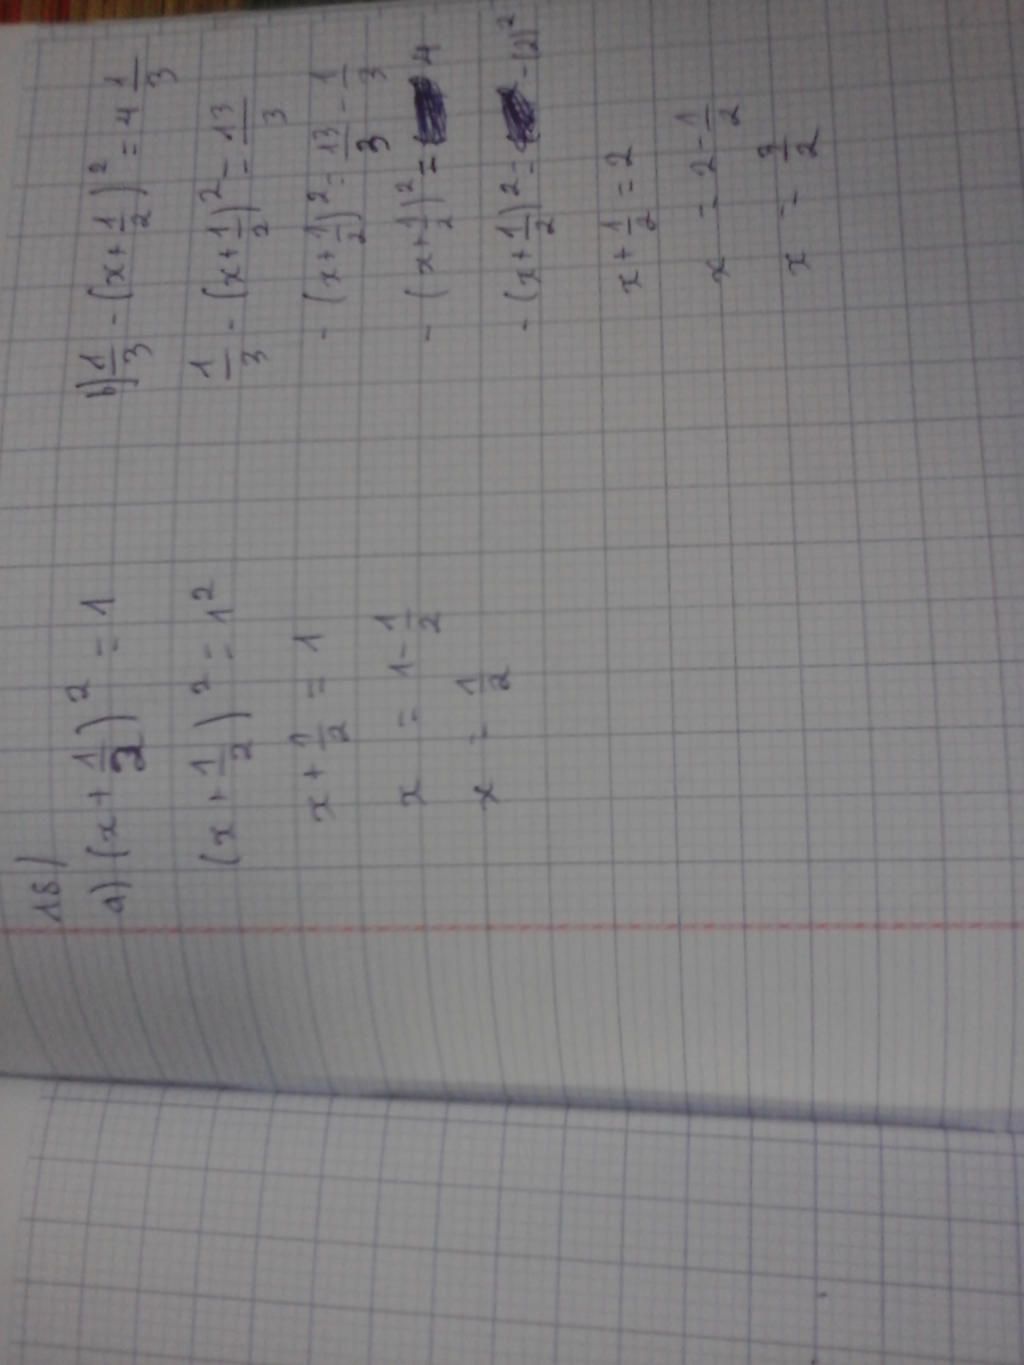 18)
a) (x + 1/2)² = 1
(x + 1/2)² = 1²
x + 1/2 = 1
x = 1 - 1/2
x = 1/2
b) 1/3 - (x + 1/2)² = 4 1/3
1/3 - (x + 1/2)² = 13/3
- (x + 1/2)² = 13/3 - 1/3
- (x + 1/2)² = 4
- (x + 1/2)² = -(2)²
x + 1/2 = 2
x = 2 - 1/2
x = 3/2